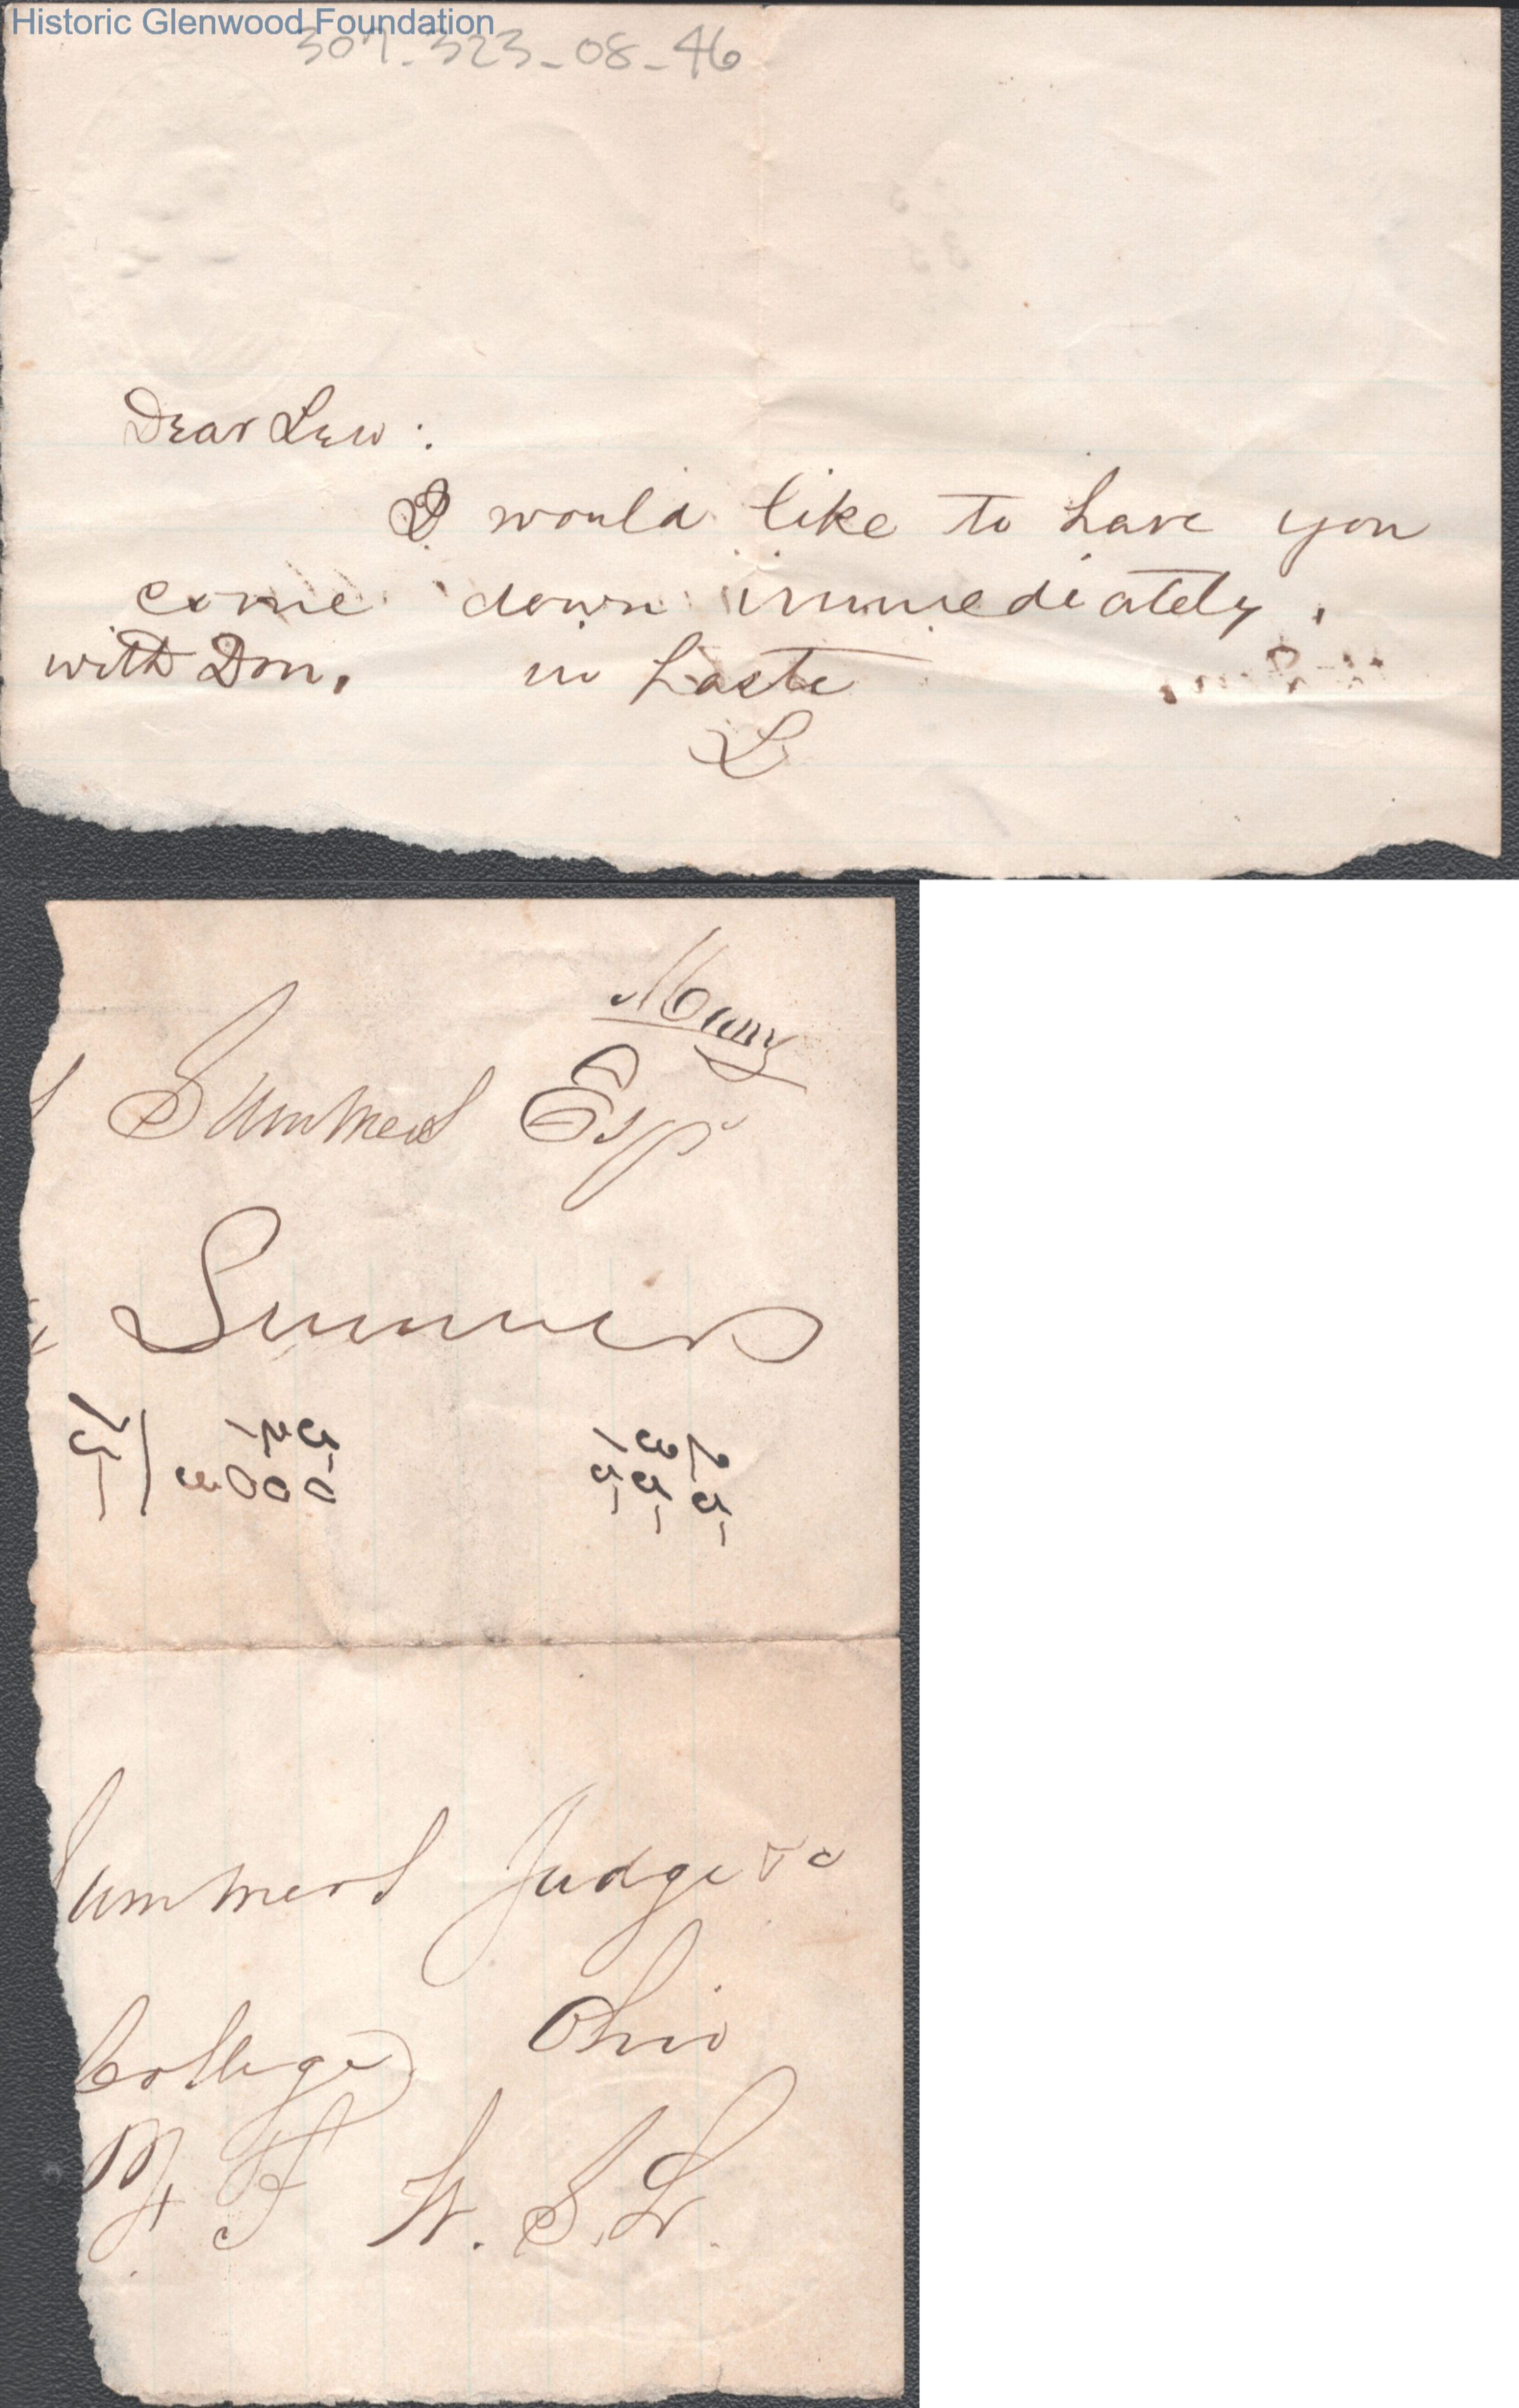 Historic Glenwood Foundation
307-323-08-46
Dear Lew:
I would like to have you
come down immediately.
with Don. in haste
L
Summers Esq
Summers
75
3000
125
25
35
15
ummers Judge &c
College Ohio
W. S. L.